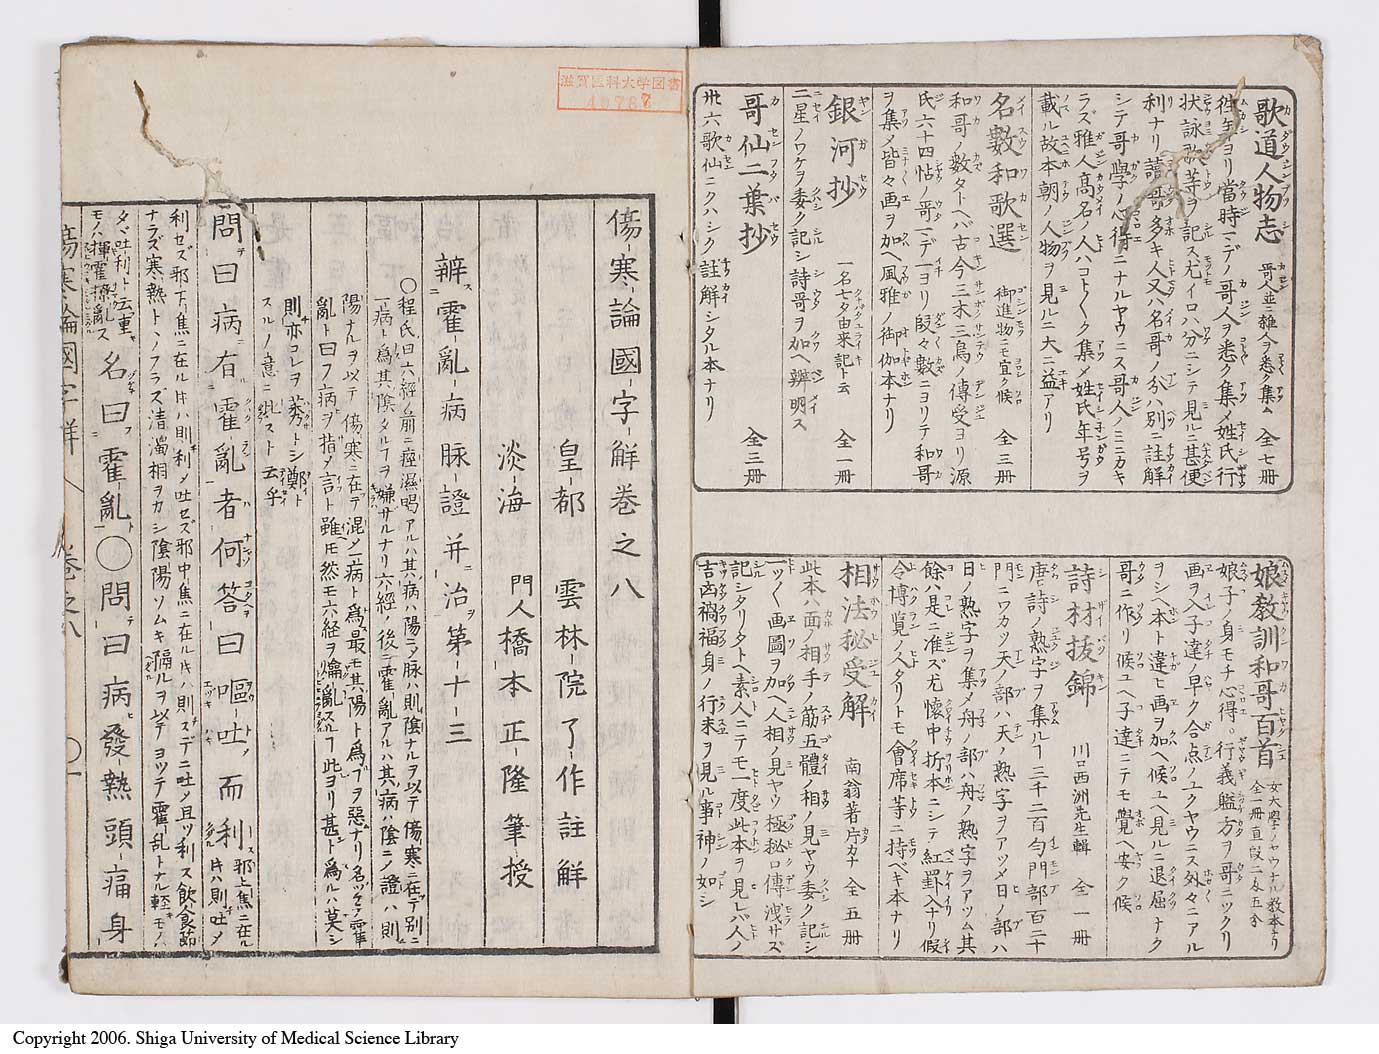 歌道人物志 哥人並ニ雑人ヲ悉ク集ム 全七冊
往年ヨリ當時マデノ哥人ヲ悉ク集メ姓氏行
状詠歌等ヲ記ス尤イロハ分ニシテ見ルニ甚便
利ナリ諸哥多キ人又ハ名哥ノ分ハ別ニ註解
シテ哥學ノ心得ニナルヤウニス哥人ノミニカキ
ラズ雅人高名ノ人ハコト〲ク集メ姓氏年号ヲ
載ル故本朝ノ人物ヲ見ルニ大ニ益アリ
名數和歌選 御進物ニモ宜ク候 全三冊
和哥ノ數タトヘバ古今三木三鳥ノ傳受ヨリ源
氏六十四帖ノ哥マデ一ヨリ段々數ニヨリテ和哥
ヲ集メ皆々画ヲ加ヘ風雅ノ御伽本ナリ
銀河抄 一名七夕由来記ト云 全一冊
二星ノワケヲ委ク記シ詩哥ヲ加ヘ辨明ス
哥仙二葉抄 全三冊
卅六歌仙ニクハシク註解シタル本ナリ
娘教訓和哥百首
娘子ノ身モチ心得。行義躾方ヲ哥ニツクリ
画ヲ入子達ノ早ク合点ノユクヤウニス外々ニアル
ヲシヘ本ト違ヒ画ヲ加ヘ候ユヘ見ルニ退屈ナク
哥ニ作リ候ユヘ子達ニテモ覺ヘ安ク候
詩材抜錦 川口西洲先生輯 全一冊
唐詩ノ熟字ヲ集ルヿ三千二百句門部百二十
門ニワカツ天ノ部ハ天ノ熟字ヲアツメ日ノ部ハ
日ノ熟字ヲ集メ舟ノ部ハ舟ノ熟字ヲアツム其
餘ハ是ニ准ズ尤懐中折本ニシテ紅罫入ナリ假
令博覧ノ人タリトモ會席等ニ持ベキ本ナリ
相法秘受解 南翁著片カナ 全五冊
此本ハ面ノ相手ノ筋五體ノ相ノ見ヤウ委ク記シ
一ツ〱画圖ヲ加ヘ人相ノ見ヤウ極秘口傳洩サズ
記シタリタトヘ素人ニテモ一度此本ヲ見レバ人ノ
吉凶禍福身ノ行末ヲ見ル事神ノ如シ
滋賀医科大学図書
傷寒論國字解巻之八
皇都 雲林院了作註解
淡海 門人橋本正隆筆授
辨霍亂病脉證并治第十三
○程氏曰六經ノ前ニ痙濕暍アルハ其病ハ陽ニノ脉ハ則陰ナルヲ以テ傷寒ニ在テ別ニ
一病ト為其陰タルヿヲ嫌ザルナリ六經ノ後ニ霍亂アルハ其病ハ陰ニノ證ハ則
陽ナルヲ以テ傷寒ニ在テ混メ一病ト為最モ其陽ト為ヿヲ惡ナリ名ヅケテ霍
亂ト曰フ病ヲ指メ言ト雖モ然モ六経ヲ
則亦コレヲ莠トシ鄭ト
スルノ意ニ
問曰病有霍亂者何答曰嘔吐而利
利セズ邪下焦ニ在ル片ハ則利メ吐セズ邪中焦ニ在ル片ハ則スデニ吐ノ且ツ利ス飲食節
ナラズ寒熱トヽノフラズ清濁相ヲカシ陰陽ソムキ隔ルヲ以テヨツテ霍乱トナル軽モノハ
名曰霍亂○問曰病發熱頭痛身
傷寒論國字解 巻之八 ○一
Copyright 2006. Shiga University of Medical Science Library